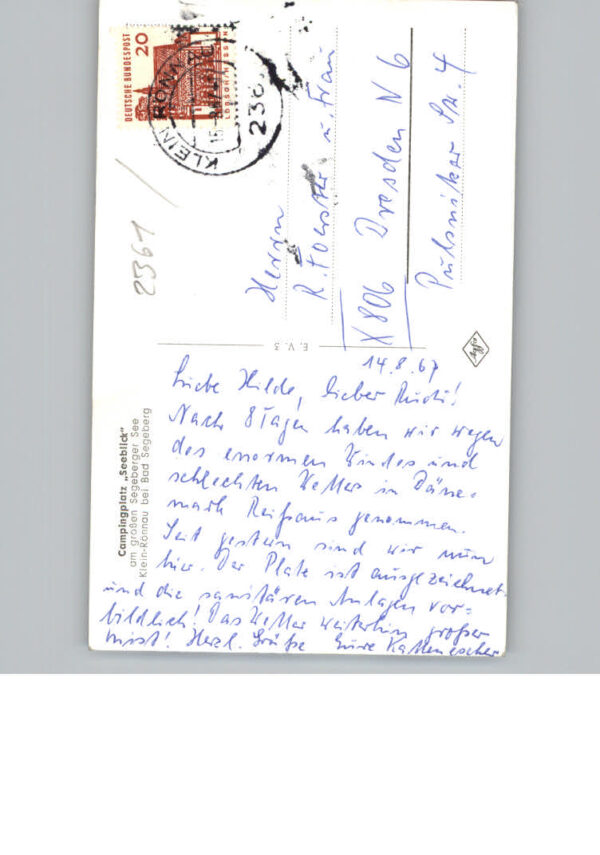 Campingplatz „Seeblick"
am großen Segeberger See
Klein-Rönnau bei Bad Segeberg
14.8.67
Liebe Hilde, lieber Rudi!
Nach 8 Tagen haben wir wegen
des enormen Windes und
schlechten Wetters in Däne-
mark Reißaus genommen.
Seit gestern sind wir nun
hier. Der Platz ist ausgezeichnet
und die sanitären Anlagen vor-
bildlich! Das Wetter weiterhin großer
Mist! Herzl. Grüße Eure
E. V. 3
DEUTSCHE BUNDESPOST
20
LORSCH/HESSEN
KLEIN RÖNNAU
236
2361
Herrn
R. Foerster u. Frau
X 806 Dresden N 6
Pulsnitzer Str. 4